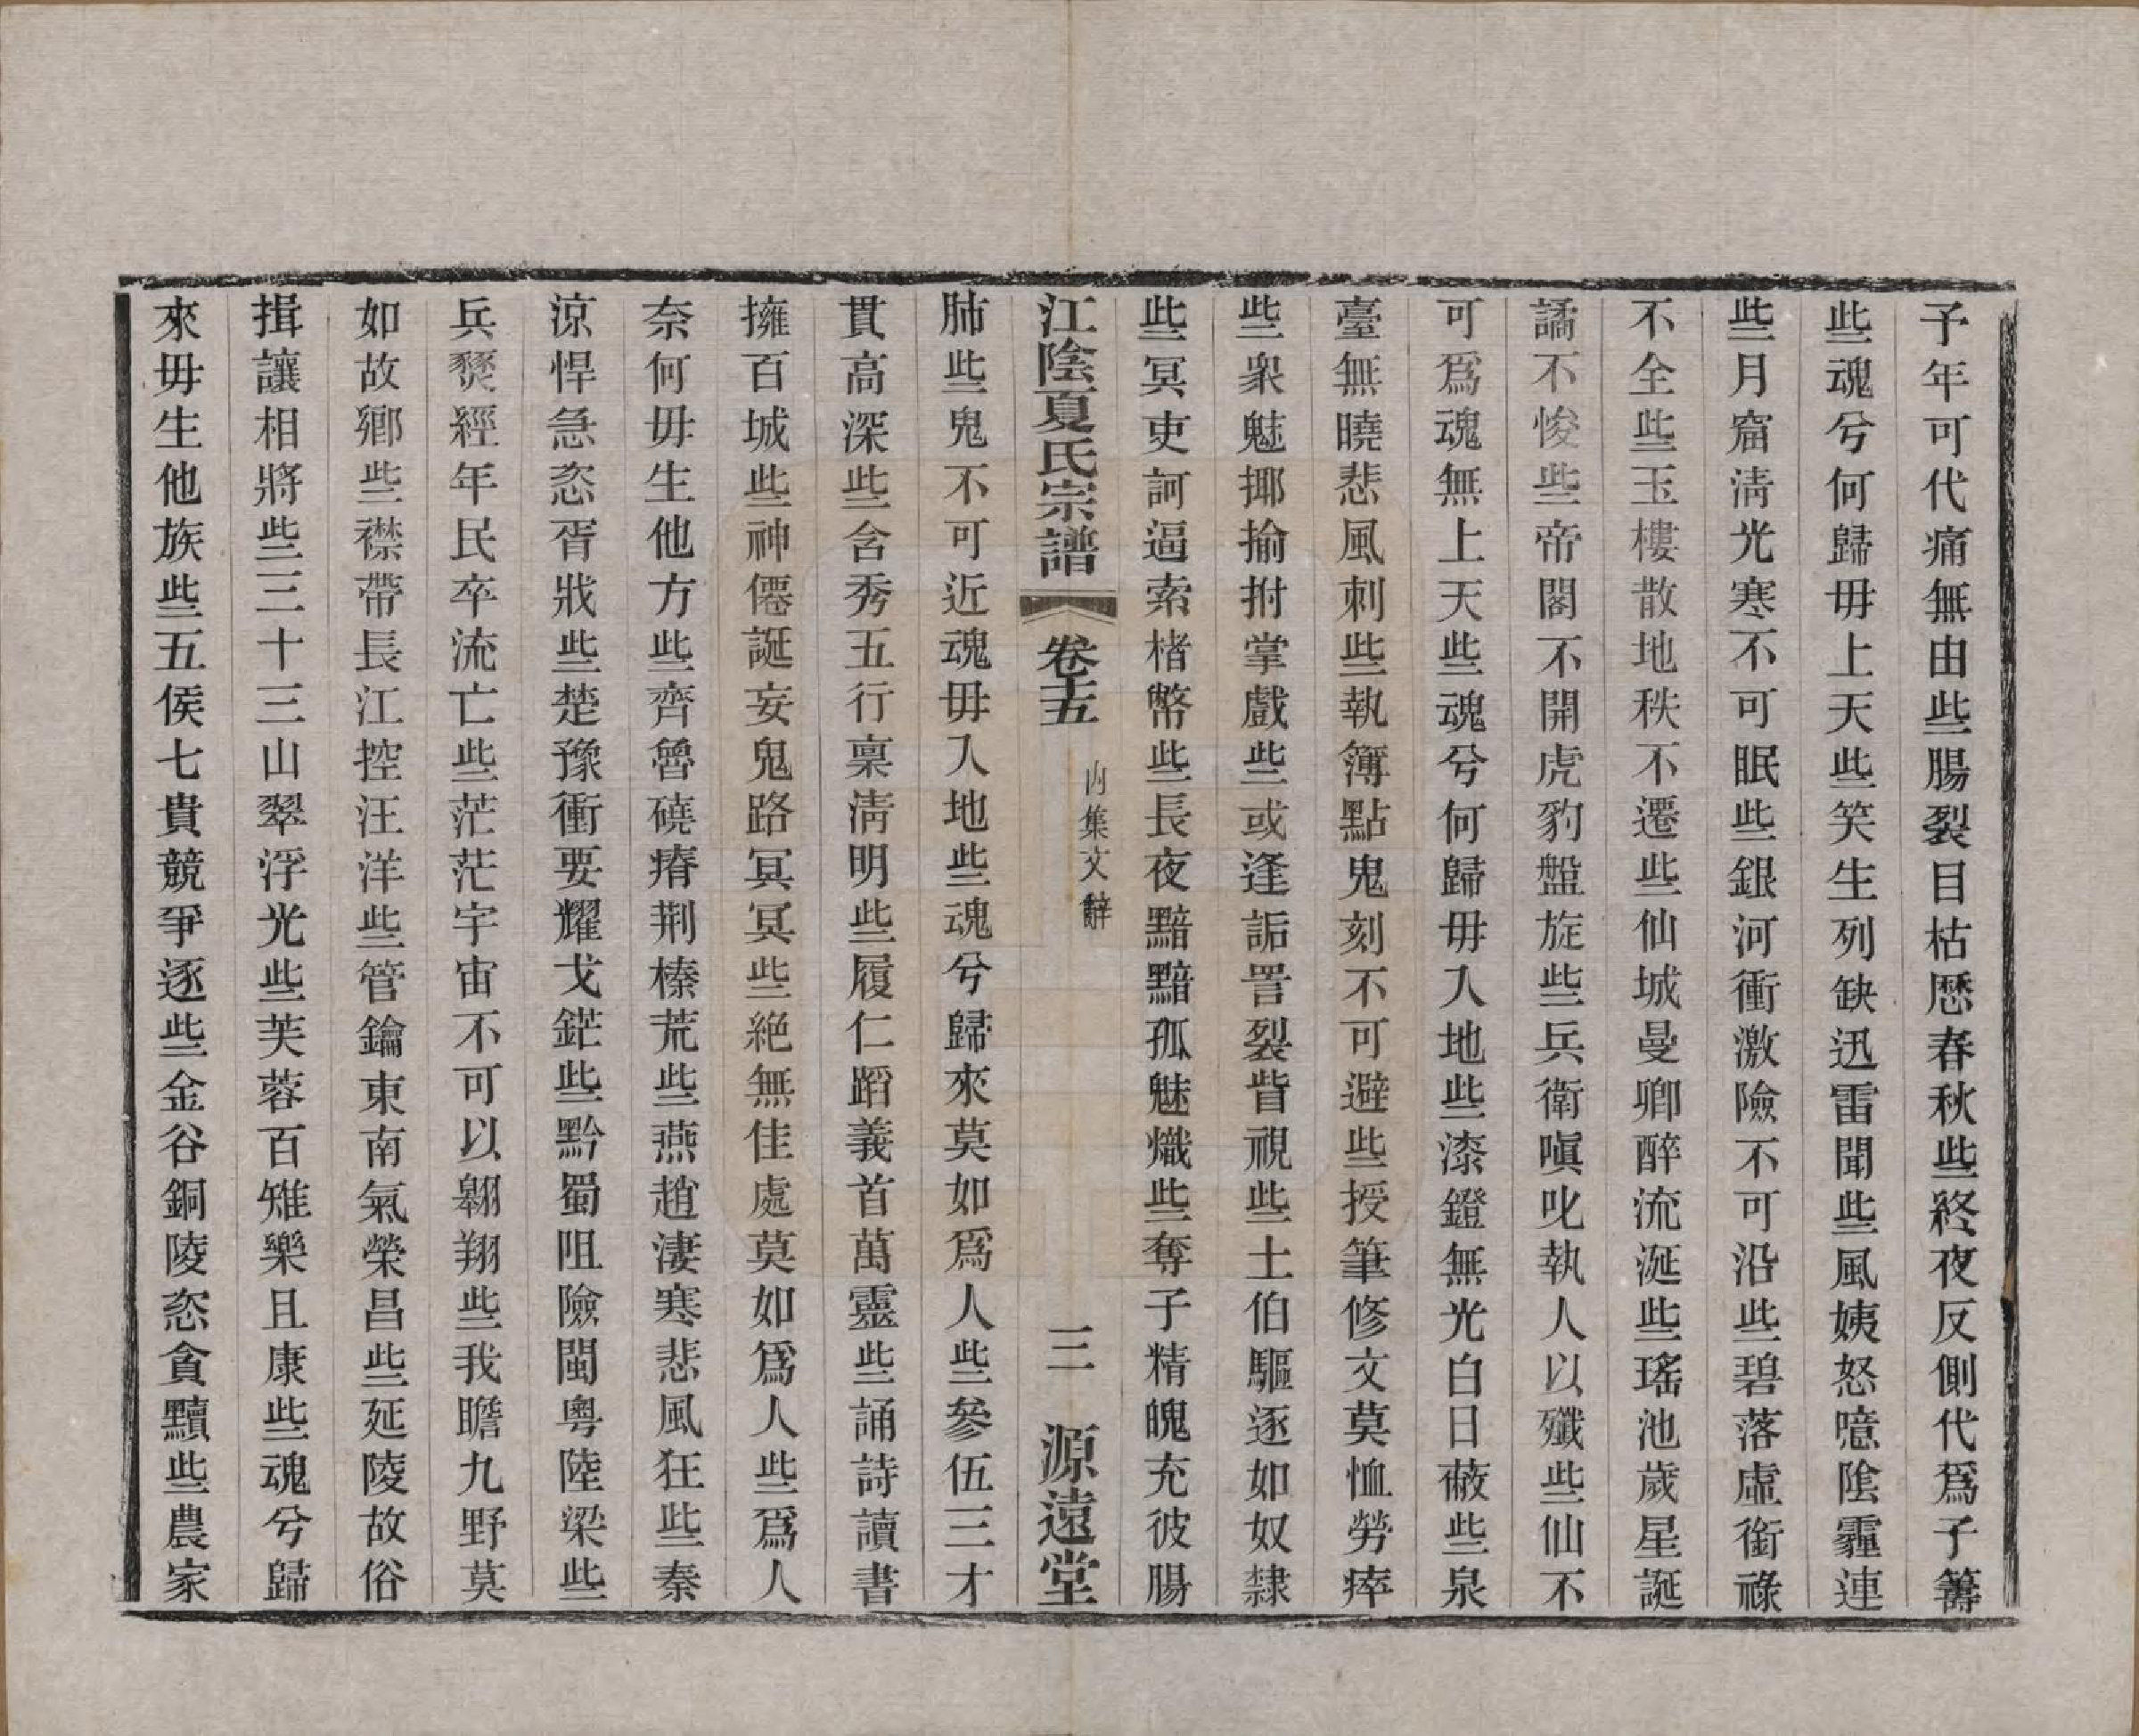 予年可代痛無由些腸裂目枯歷春秋些終夜反側代爲子籌
些魂兮何歸毋上天些笑生列缺迅雷聞些風姨怒噫陰霾連
些月窟淸光寒不可眠些銀河衝激險不可沿些碧落虛銜祿
不全些玉樓散地秩不遷些仙城曼卿醉流涎些瑤池歲星誕
譎不悛些帝閽不開虎豹盤旋些兵衛嗔叱執人以殲些仙不
可爲魂無上天些魂兮何歸毋入地些漆鐙無光白日蔽些泉
臺無曉悲風刺些執簿點鬼刻不可避些授筆修文莫恤勞瘁
些衆魅揶揄拊掌戲些或逢詬詈裂眥視些土伯驅逐如奴隸
些冥吏訶逼索楮幣些長夜黯黯孤魅熾些奪子精魄充彼腸
江陰夏氏宗譜 卷十五 內集文辭 三 源遠堂
肺些鬼不可近魂毋入地些魂兮歸來莫如爲人些參伍三才
貫高深些含秀五行稟淸明些履仁蹈義首萬靈些誦詩讀書
擁百城些神僊誕妄鬼路冥冥些絕無佳處莫如爲人些爲人
奈何毋生他方些齊魯磽瘠荆榛荒些燕趙淒寒悲風狂些秦
涼悍急恣胥戕些楚豫衝要耀戈鋩些黔蜀阻險閩粵陸梁些
兵燹經年民卒流亡些茫茫宇宙不可以翱翔些我瞻九野莫
如故鄉些襟帶長江控汪洋些管鑰東南氣榮昌些延陵故俗
揖讓相將些三十三山翠浮光些芙蓉百雉樂且康些魂兮歸
來毋生他族些五侯七貴競爭逐些金谷銅陵恣貪黷些農家